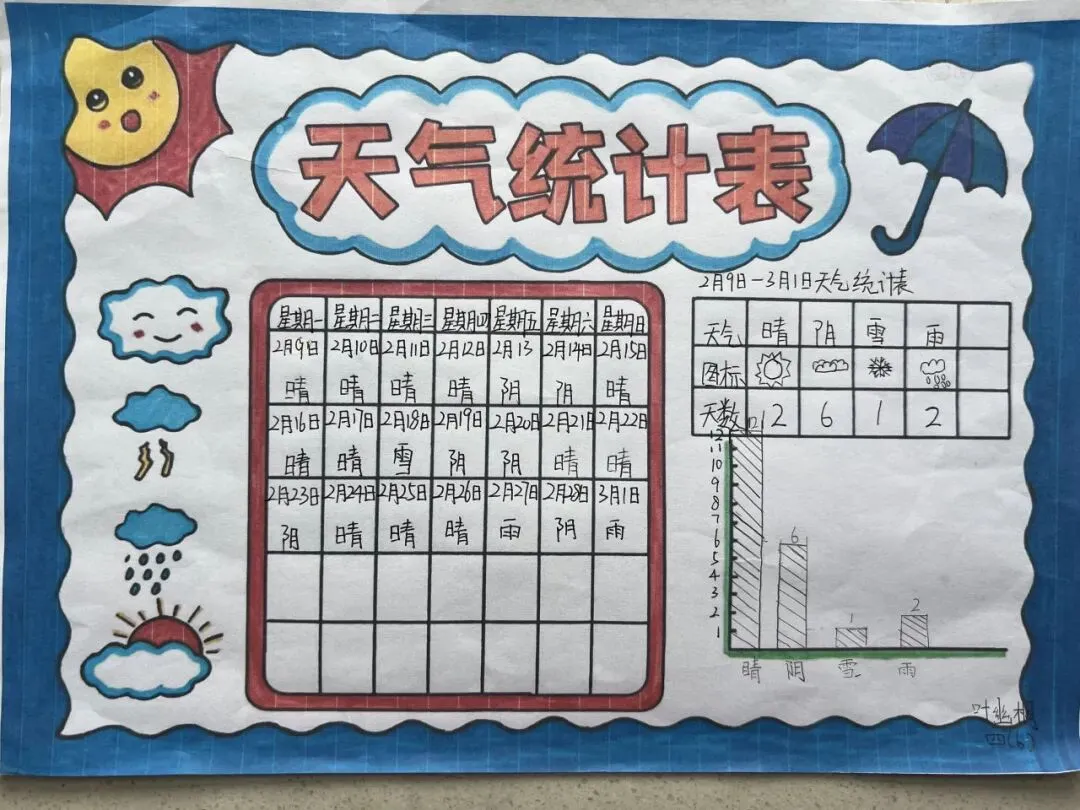 天气统计表
星期一 星期二 星期三 星期四 星期五 星期六 星期日
2月9日 2月10日 2月11日 2月12日 2月13 2月14日 2月15日
晴 晴 晴 晴 阴 阴 晴
2月16日 2月17日 2月18日 2月19日 2月20日 2月21日 2月22日
晴 晴 雪 阴 阴 晴 晴
2月23日 2月24日 2月25日 2月26日 2月27日 2月28日 3月1日
阴 晴 晴 晴 雨 阴 雨
2月9日-3月1日天气统计表
天气 晴 阴 雪 雨
图标
天数 12 6 1 2
12
12
11
10
9
8
7
6
5
4
3
2
1
6
1
2
晴 阴 雪 雨
叶幽
四(6)